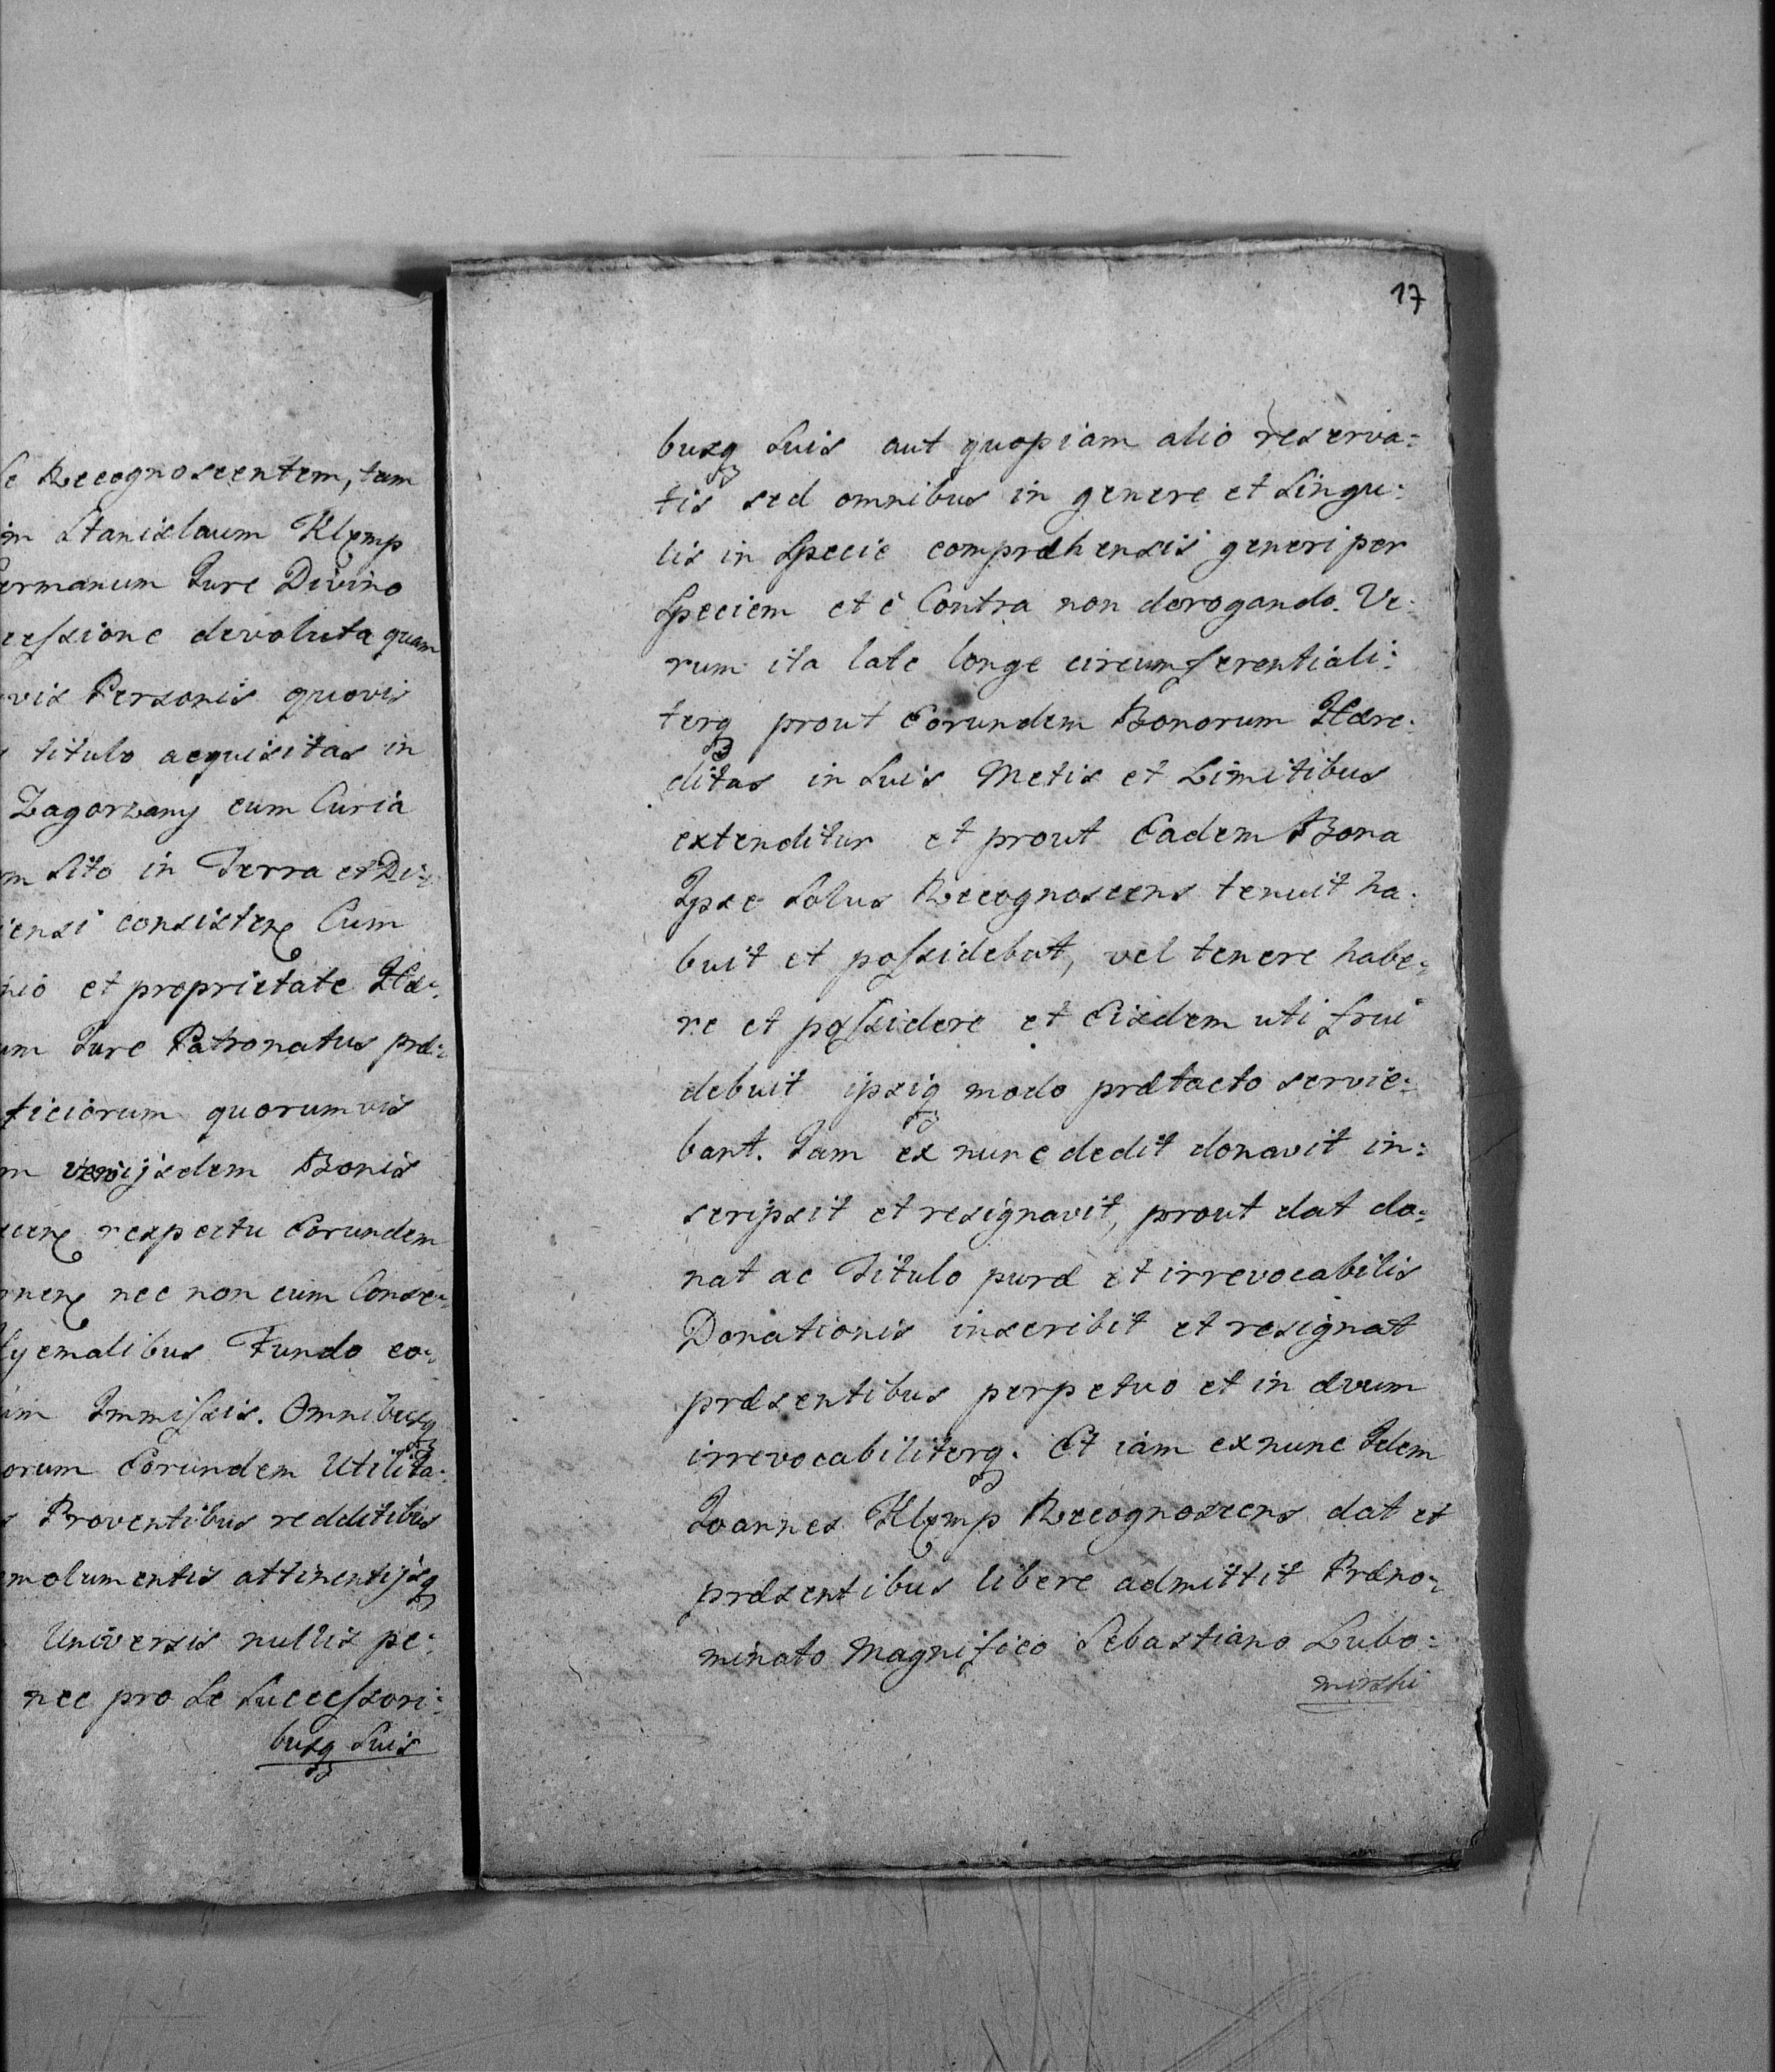 se Recognoscentem, tam
m Stanislaum Klemp
ermanum Jure Divino
cessione devoluta quam
vis Personis quovis
titulo acquisitas in
Zagorzany cum Curia
m Sito in Terra et Di:
iensi consisten. Cum
nio et proprietate Hæ:
um Jure Patronatus præ:
ticiorum quorumvis
m veroijsdem Bonis
respectu Eorundem
nec non cum Conse:
Hyemalibus Fundo eo:
im Immissis. Omnibusq
orum Eorundem Utilita:
s Proventibus redditibus
molumentis attinentijsq
Universis nullis pe:
nec pro Se Successori:
busq Suis
17
busq Suis aut quopiam alio reserva:
tis sed omnibus in genere et Singu:
lis in Specie compræhensis generi per
Speciem et è Contra non derogando. Ve:
rum ita late longe circumferentiali:
terq prout Eorundem Bonorum Hære:
ditas in Suis Metis et Limitibus
extenditur et prout Eadem Bona
Ipse Solus Recognoscens tenuit ha:
buit et possidebat, vel tenere habe:
re et possidere et Eisdem uti frui
debuit ipsiq modo prætacto servie:
bant. Iam ex nunc dedit donavit in:
scripsit et resignavit, prout dat do:
nat ac Titulo puræ et irrevocabilis
Donationis inscribit et resignat
præsentibus perpetuo et in ævum
irrevocabiliterq. Et iam exnunc Idem
Joannes Klemp Recognoscens dat et
præsentibus libere admittit Præno:
minato Magnifico Sebastiano Lubo:
mirski